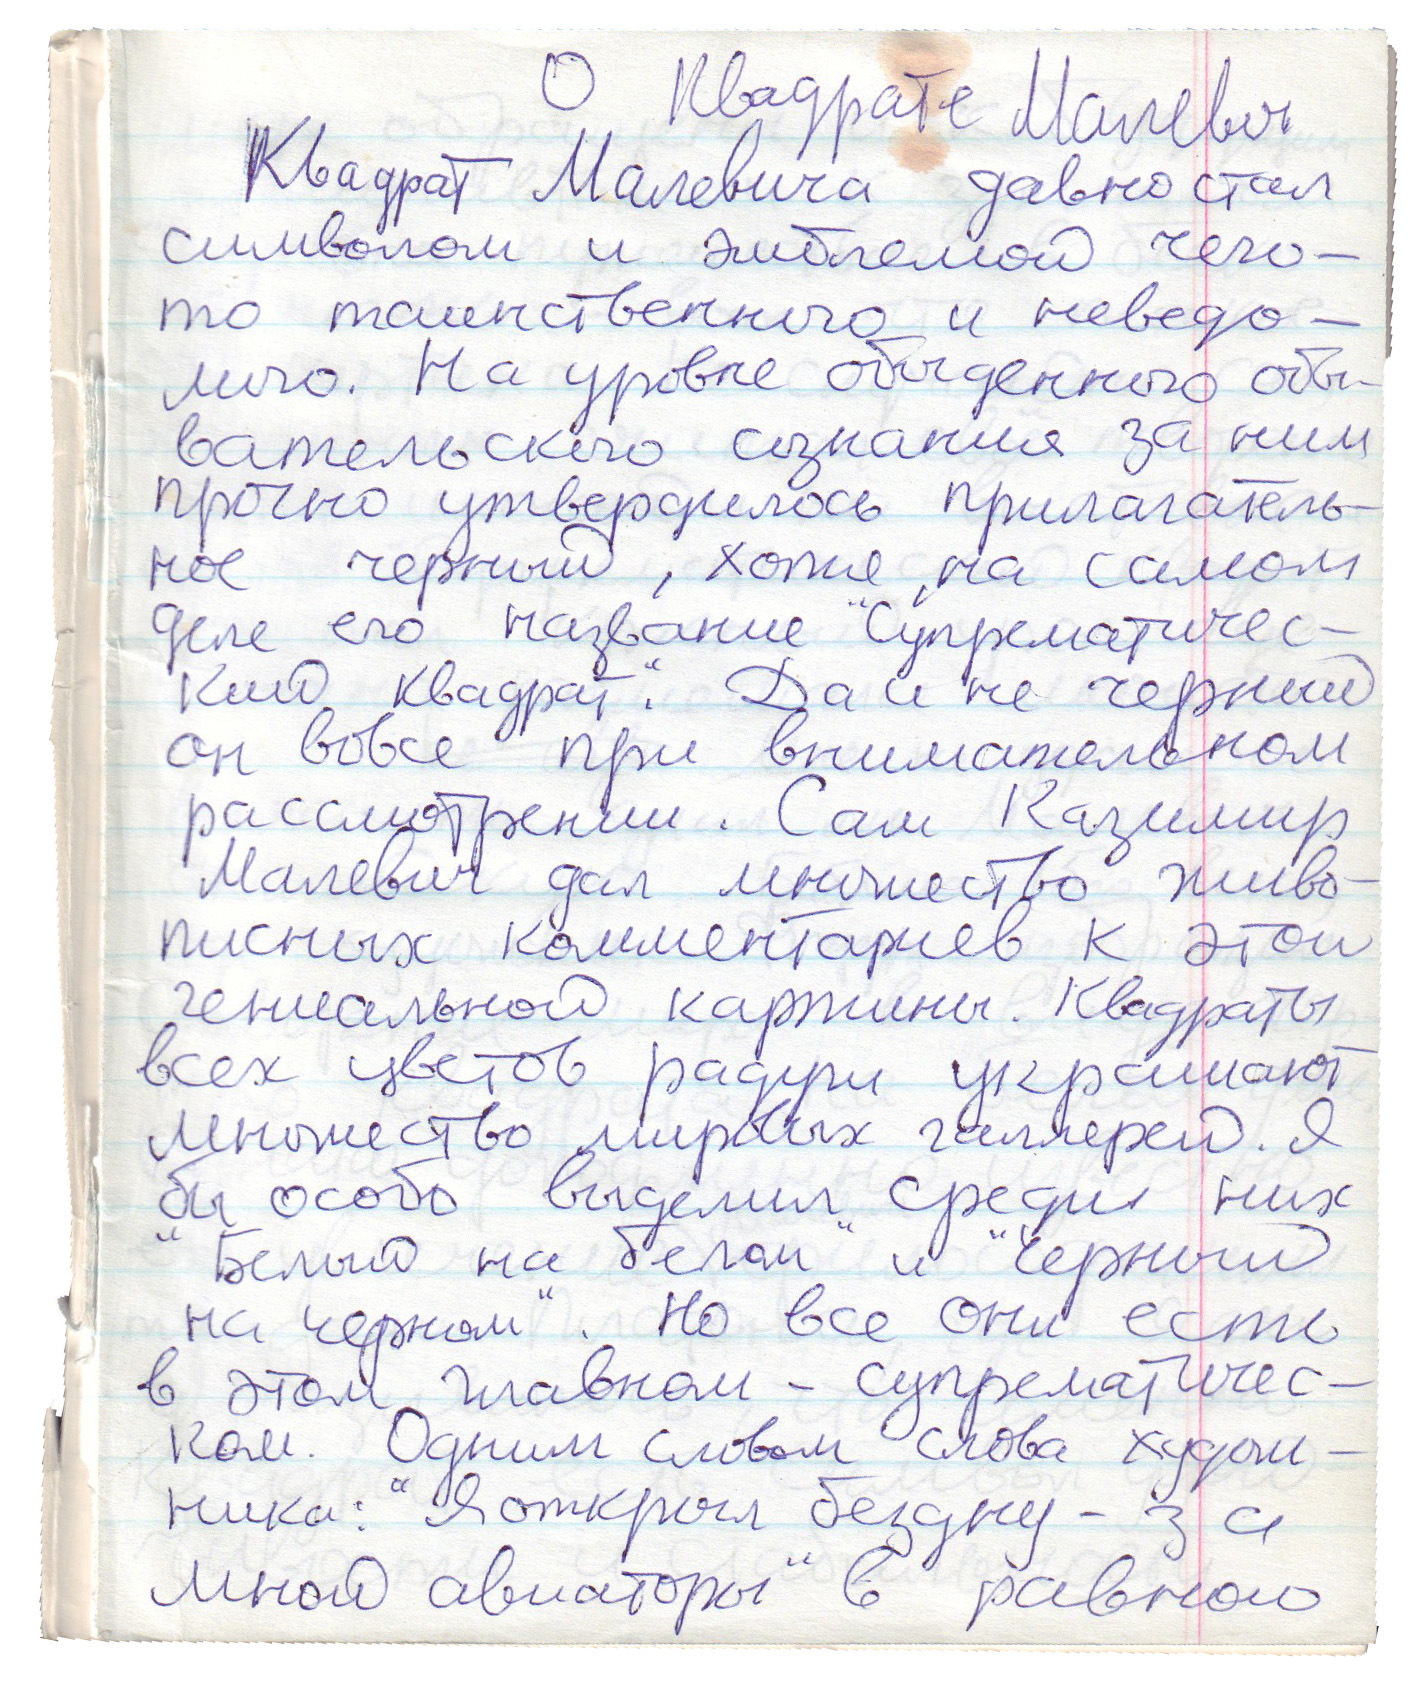 О Квадрате Малевич
Квадрат Малевича давно стал
символом и эмблемой чего-
то таинственного и неведо-
мого. На уровне обыденного обы-
вательского сознания за ним
прочно утвердилось прилагатель-
ное черный, хотя, на самом
деле его название "Супрематичес-
кий квадрат". Да и не черный
он вовсе при внимательном
рассмотрении. Сам Казимир
Малевич дал множество живо-
писных комментариев к этой
гениальной картины. Квадраты
всех цветов радуги украшают
множество мировых галлерей. Я
бы особо выделил среди них
"Белый на белом" и "Черный
на черном". Но все они есть
в этом главном - супрематичес-
ком. Одним словом слова худож-
ника: "Я открыл бездну - за
мной авиаторы" в равной